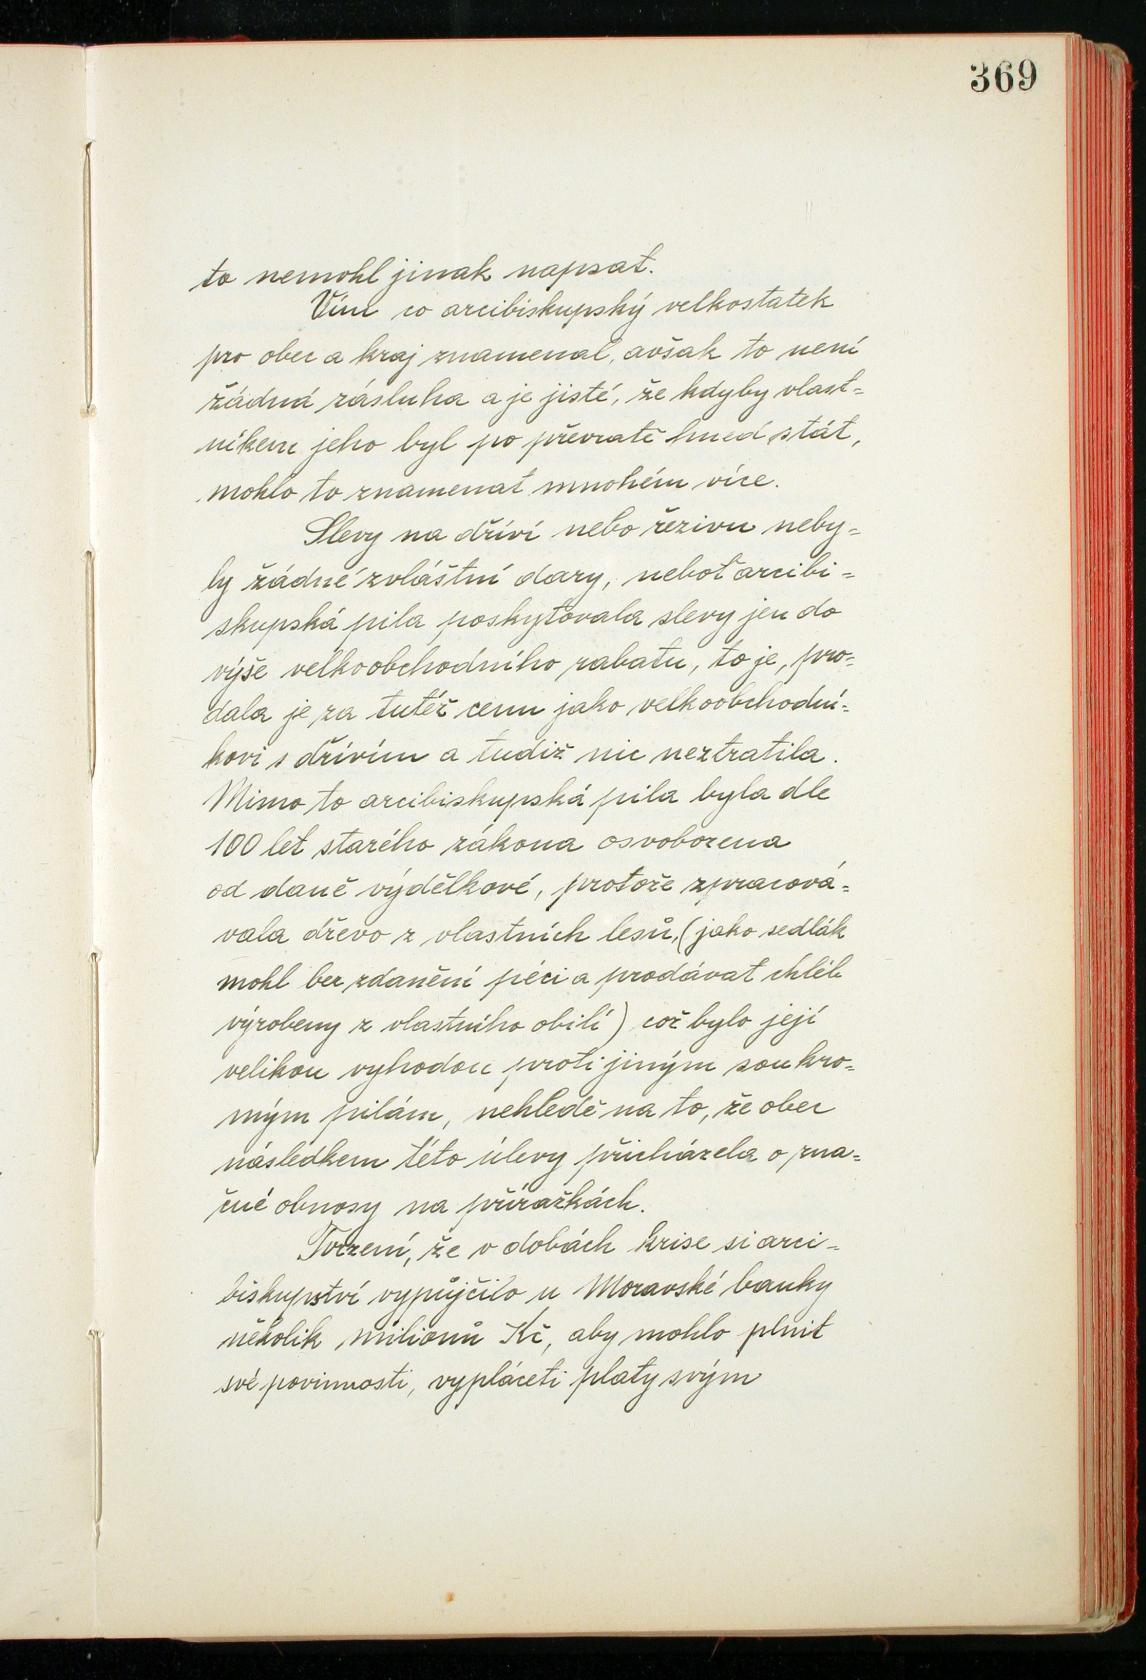 369
to nemohl jinak napsat.
Vím co arcibiskupský velkostatek
pro obec a kraj znamenal, avšak to není
žádná zásluha a je jisté, že kdyby vlast=
níkem jeho byl po převratě hned stát,
mohlo to znamenat mnohém více.
Slevy na dříví nebo řezivu neby=
ly žádné zvláštní dary, neboť arcibi=
skupská pila poskytovala slevy jen do
výše velkoobchodního rabatu, to je, pro=
dala je za tutéž cenu jako velkoobchodní=
kovi s dřívím a tudiž nic neztratila.
Mimo to arcibiskupská pila byla dle
100 let starého zákona osvobozena
od daně výdělkové, protože zpracová=
vala dřevo z vlastních lesů, (jako sedlák
mohl bez zdanění péci a prodávat chléb
výrobeny z vlastního obilí) což bylo její
velikou vyhodou proti jiným soukro=
mým pilám, nehledě na to, že obec
následkem této úlevy přicházela o zna=
čné obnosy na přirážkách.
Tvrzení, že v dobách krise si arci=
biskupství vypůjčilo u Moravské banky
několik milionů Kč, aby mohlo plnit
své povinnosti, vypláceti platy svým